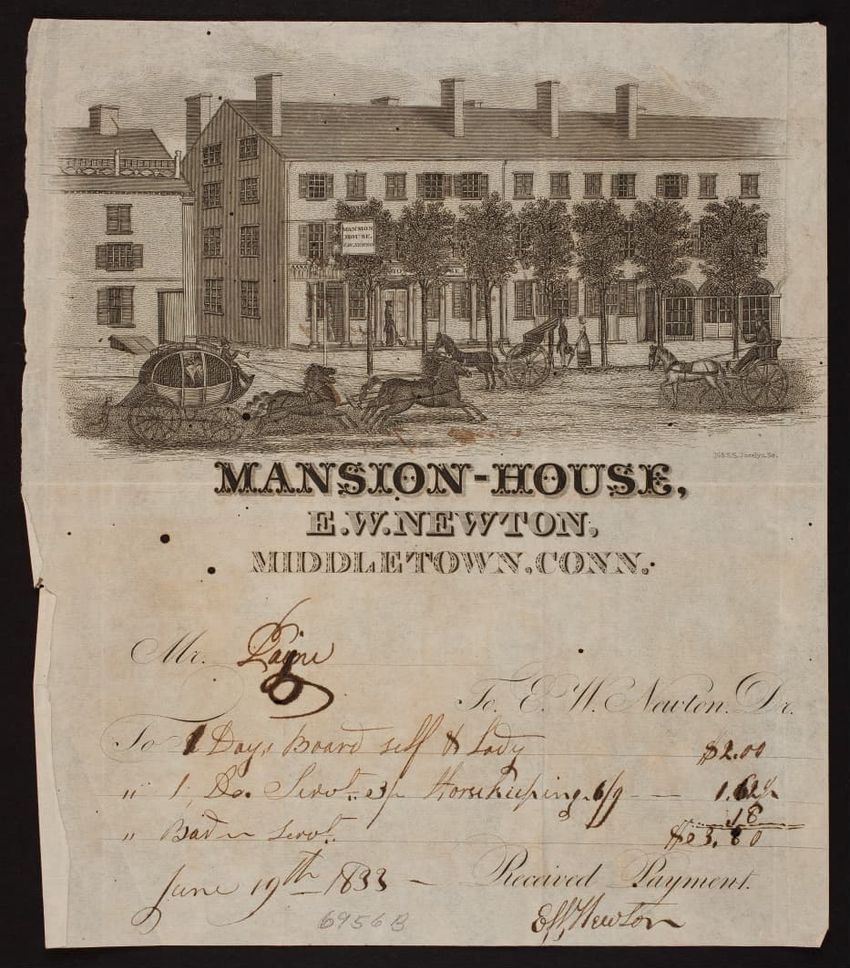 MANSION
HOUSE.
E.W.NEWTON
N.&S.S. Jocelyn, Sc.
MANSION-HOUSE,
E.W.NEWTON,
MIDDLETOWN, CONN.
Mr. Paine
To E. W. Newton. Dr.
To 1 Days Board self & Lady $2.00
" 1 Do. Servt. 3/- Horsekeeping 6/9 — 1.62
18
" Servt. $3.80
June 19th 1833 — Received Payment.
EWNewton
6956B